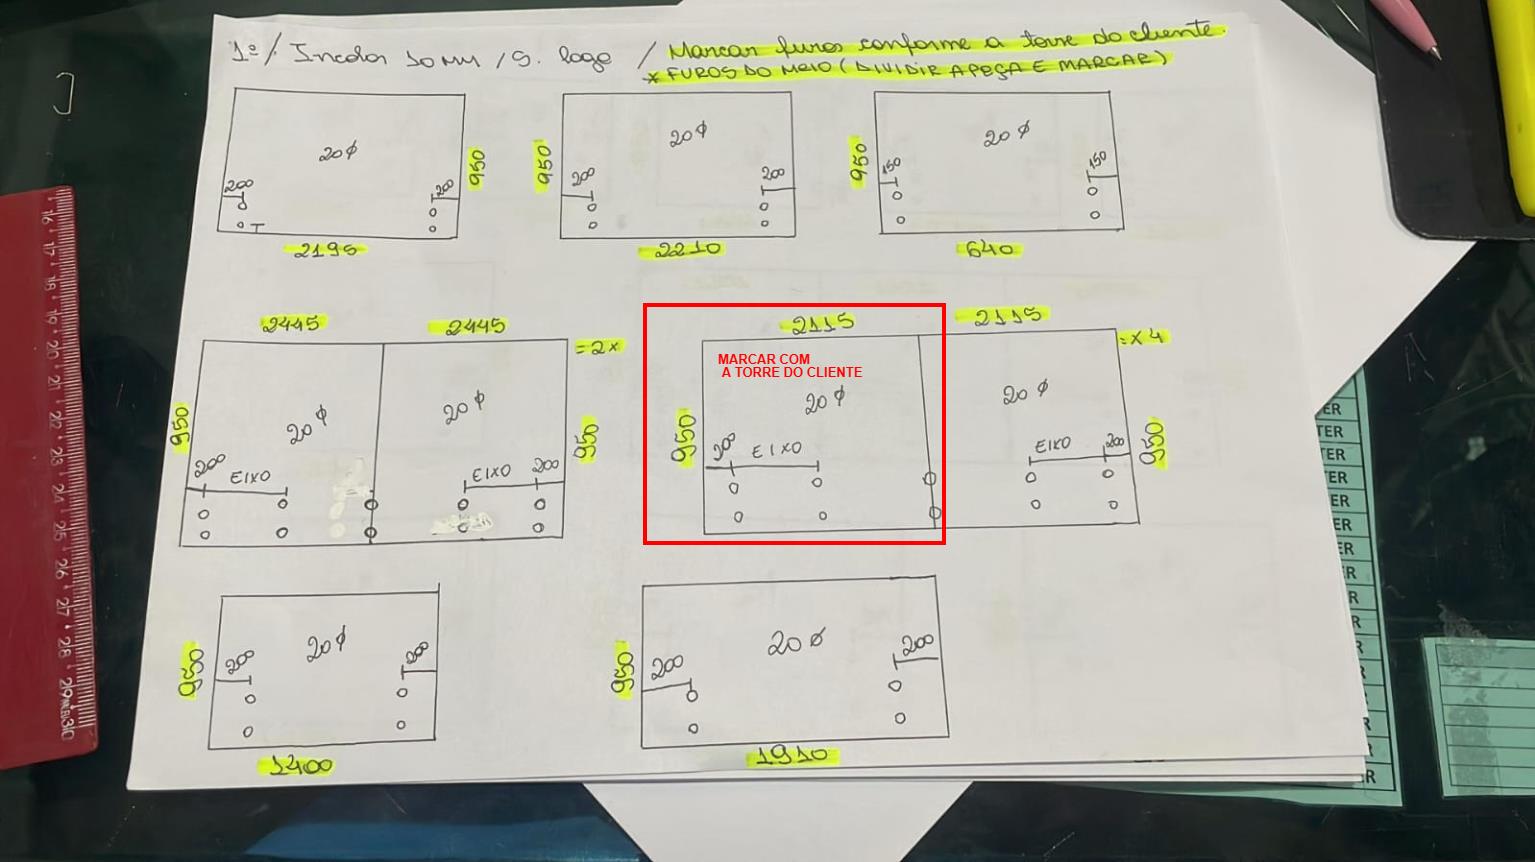 1º / Incolor 10 MM / S. logo / Marcar furos conforme a torre do cliente.
* FUROS DO MEIO (DIVIDIR A PEÇA E MARCAR)
20 ϕ
200
200
950
2195
950
20 ϕ
200
200
2210
950
20 ϕ
150
150
640
2445
2445
= 2x
950
20 ϕ
20 ϕ
200
EIXO
EIXO
200
950
2115
2115
= x4
MARCAR COM
A TORRE DO CLIENTE
950
20 ϕ
20 ϕ
200
EIXO
EIXO
200
950
950
20 ϕ
200
200
1400
950
20 ϕ
200
200
1910
16 17 18 19 20 21 22 23 24 25 26 27 28 29 30
ER
TER
TER
ER
ER
ER
ER
R
R